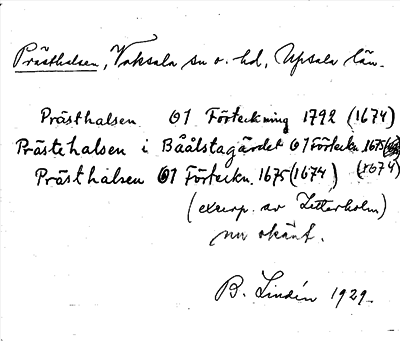 Prästhalsen, Vaksala sn o. hd, Upsala län.
Prästhalsen O1 Förteckning 1792 (1674)
Prästehalsen i Båålstagärdet O1 Förteckn. 1675
(1674)
Prästhalsen O1 Förteckn. 1675 (1674)
(excerp. av Zetterholm)
nu okänt.
B. Lindén 1929.